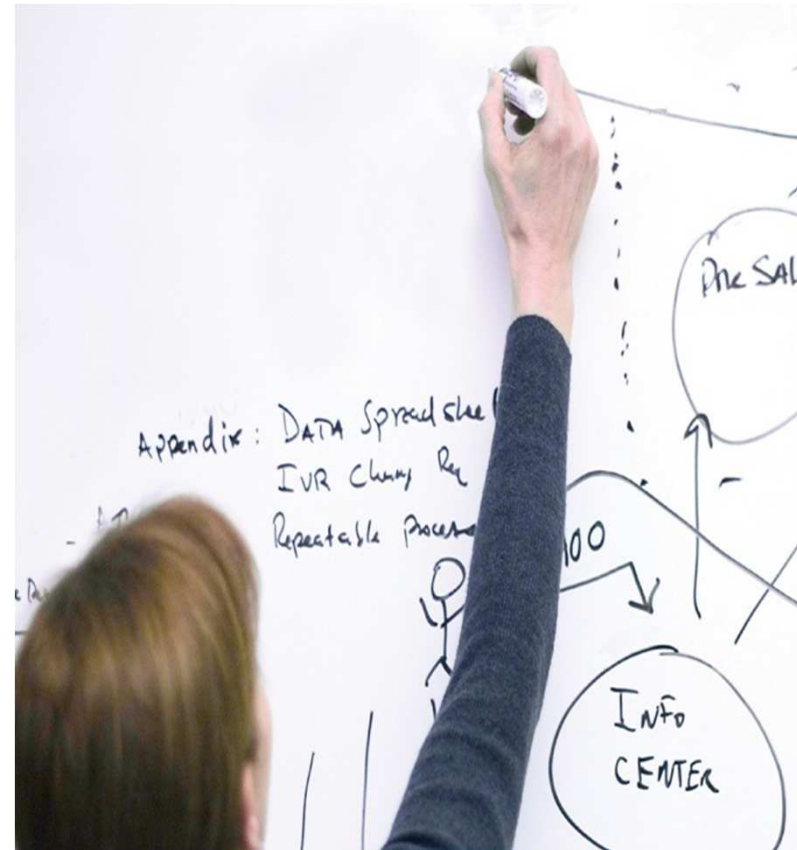 Appendix: DATA Spread shee
IVR Change Req
Repeatable Process
100
Pre SAL
INFO
CENTER